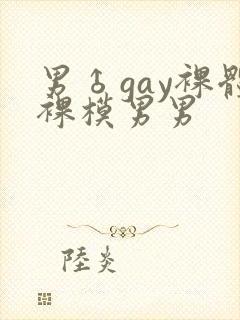 男♂gay裸體
裸模男男
陸炎